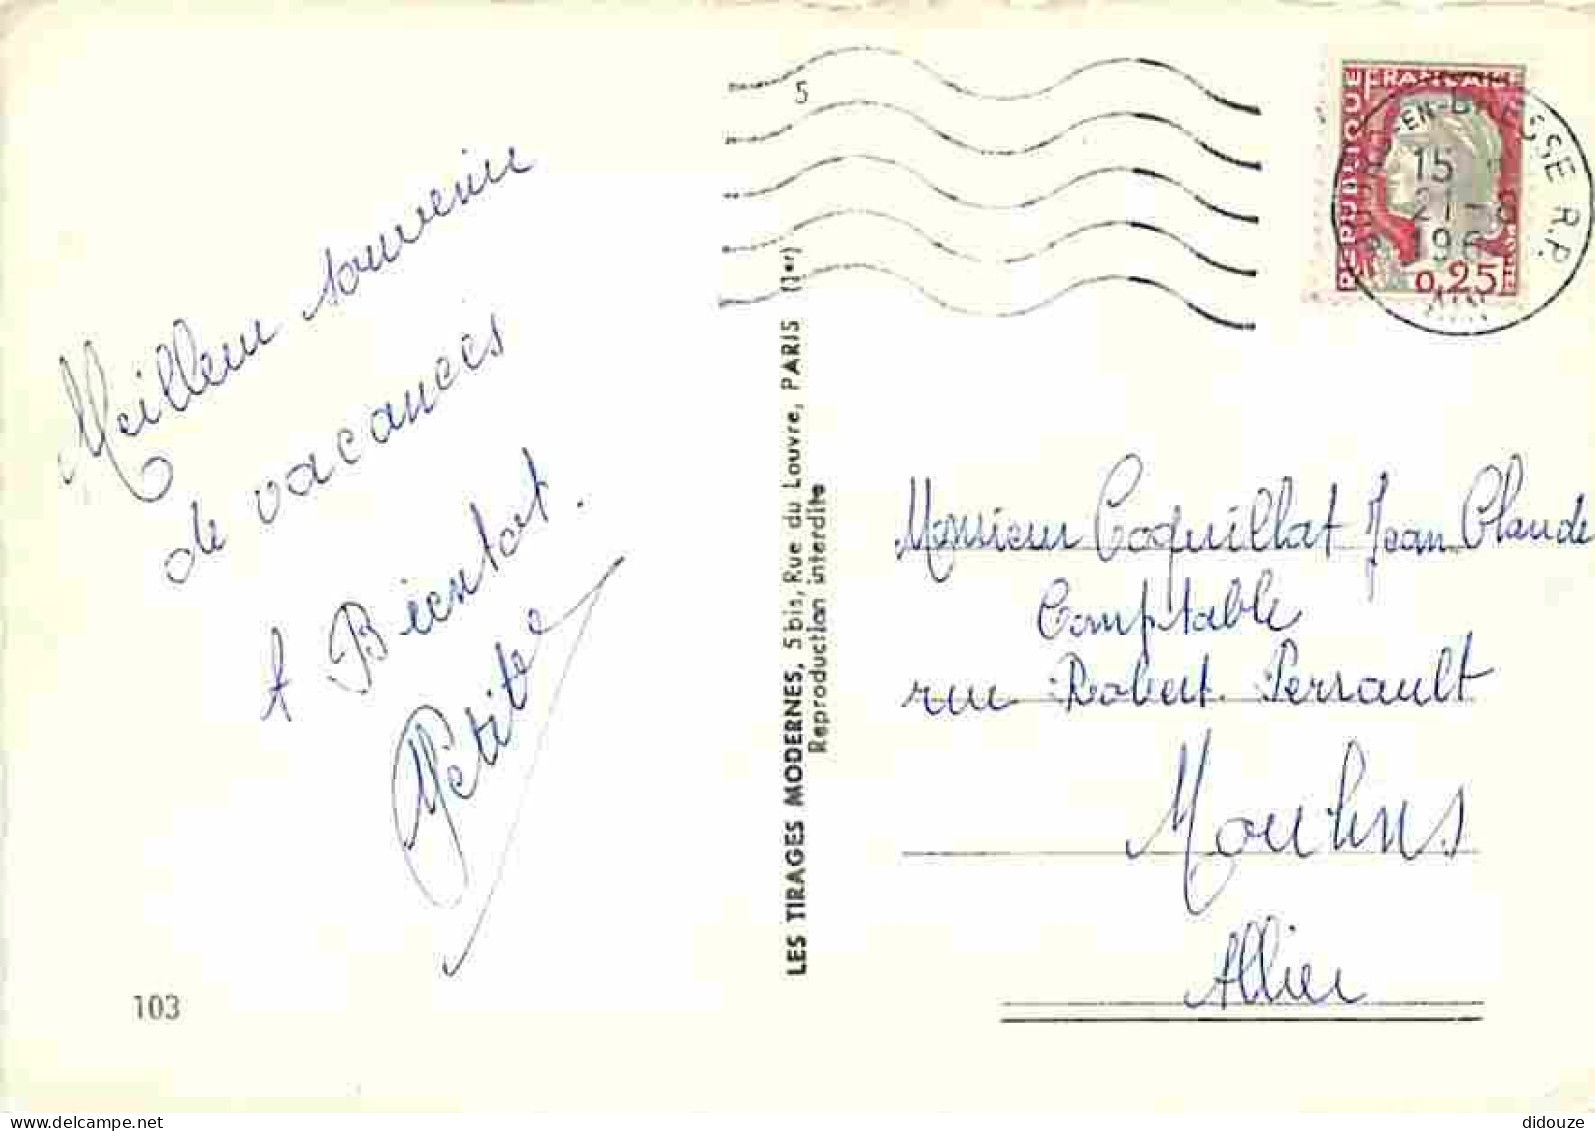 Meilleur souvenir
de vacances
A Bientot.
Petite
103
LES TIRAGES MODERNES, 5 bis, Rue du Louvre, PARIS (1er)
Reproduction interdite
5
REPUBLIQUE FRANCAISE
0,25
EN-BRESSE R.P.
15
21-8
196
AIN
Monsieur Coquillat Jean Claude
Comptable
rue Robert Perrault
Moulins
Allier
delcampe.net
didouze